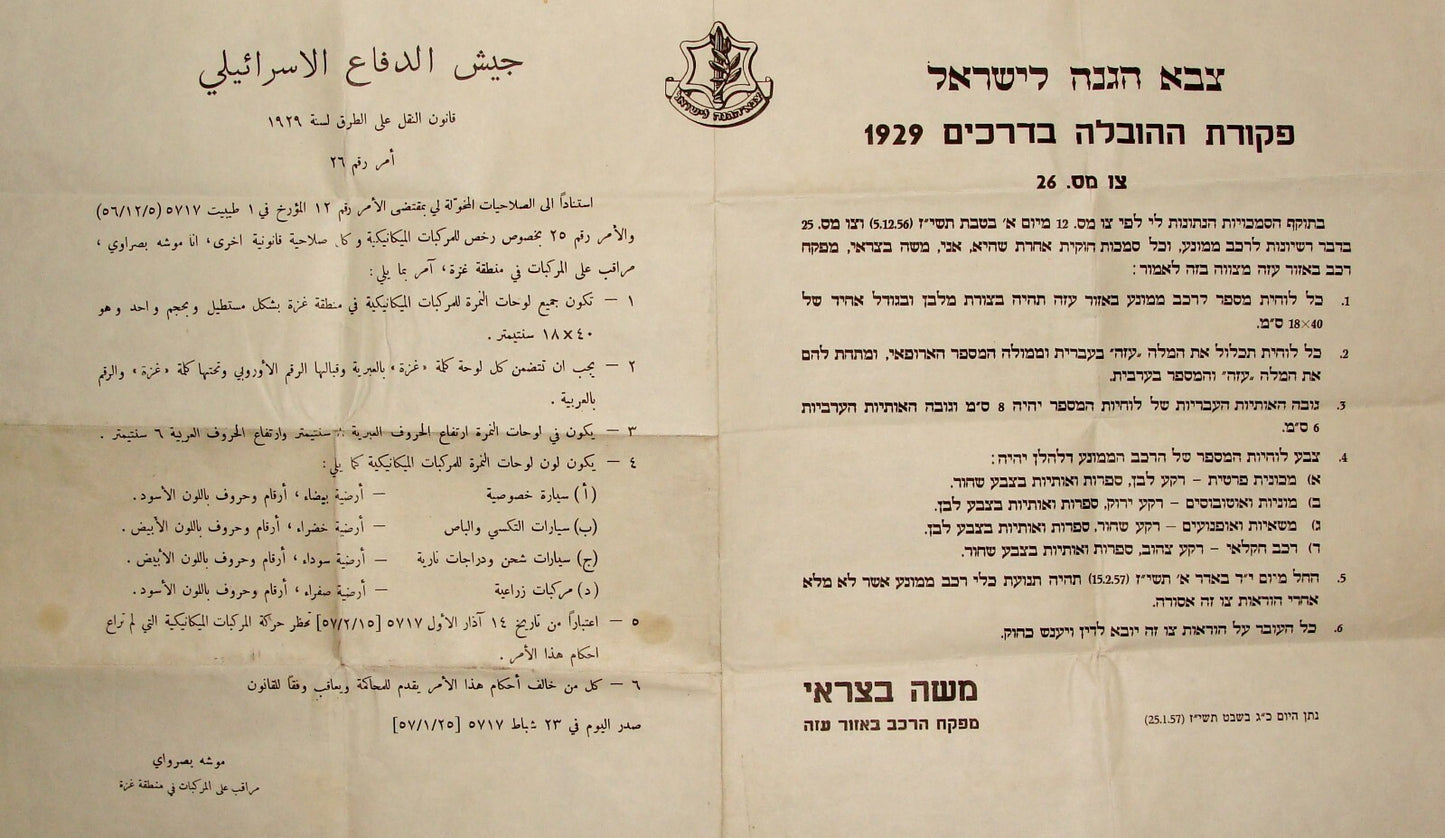 צבא הגנה לישראל
פקורת ההובלה בדרכים 1929
צו מס. 26
בתוקף הסמכויות הנתונות לי לפי צו מס. 12 מיום א׳ בטבת תשי״ז (5.12.56) וצו מס. 25
בדבר רשיונות לרכב ממונע, וכל סמכות חוקית אחרת שהיא, אני, משה בצראי, מפקח
רכב באזור עזה מצווה בזה לאמור:
1. כל לוחית מספר לרכב ממונע באזור עזה תהיה בצורת מלבן ובגודל אחיד של
18×40 ס״מ.
2. כל לוחית תכלול את המלה „עזה״ בעברית וממולה המספר הארופאי, ומתחת להם
את המלה „עזה״ והמספר בערבית.
3. גובה האותיות העבריות של לוחיות המספר יהיה 8 ס״מ וגובה האותיות הערביות
6 ס״מ.
4. צבע לוחיות המספר של הרכב הממונע דלהלן יהיה:
א) מכונית פרטית – רקע לבן, ספרות ואותיות בצבע שחור.
ב) מוניות ואוטובוסים – רקע ירוק, ספרות ואותיות בצבע לבן.
ג) משאיות ואופנועים – רקע שחור, ספרות ואותיות בצבע לבן.
ד) רכב חקלאי – רקע צהוב, ספרות ואותיות בצבע שחור.
5. החל מיום י״ד באדר א׳ תשי״ז (15.2.57) תהיה תנועת כלי רכב ממונע אשר לא מלא
אחרי הוראות צו זה אסורה.
6. כל העובר על הוראות צו זה יובא לדין ויענש כחוק.
נתן היום כ״ג בשבט תשי״ז (25.1.57)
משה בצראי
מפקח הרכב באזור עזה
צבא הגנה לישראל
جيش الدفاع الاسرائيلي
قانون النقل على الطرق لسنة ١٩٢٩
أمر رقم ٢٦
استناداً الى الصلاحيات المخوّلة لي بمقتضى الأمر رقم ١٢ المؤرخ في ١ طيبيت ٥٧١٧ (٥٦/١٢/٥)
والأمر رقم ٢٥ بخصوص رخص للمركبات الميكانيكية وكل صلاحية قانونية اخرى، انا موشه بصراوي،
مراقب على المركبات في منطقة غزة، آمر بما يلي:
١ – تكون جميع لوحات النمرة للمركبات الميكانيكية في منطقة غزة بشكل مستطيل وبحجم واحد وهو
١٨×٤٠ سنتيمتر.
٢ – يجب ان تتضمن كل لوحة كلمة «غزة» بالعبرية وقبالها الرقم الأوروبي وتحتها كلمة «غزة» والرقم
بالعربية.
٣ – يكون في لوحات النمرة ارتفاع الحروف العبرية سنتيمتر وارتفاع الحروف العربية ٦ سنتيمتر.
٤ – يكون لون لوحات النمرة للمركبات الميكانيكية كما يلي:
(أ) سيارة خصوصية – أرضية بيضاء، أرقام وحروف باللون الأسود.
(ب) سيارات التكسي والباص – أرضية خضراء، أرقام وحروف باللون الأبيض.
(ج) سيارات شحن ودراجات نارية – أرضية سوداء، أرقام وحروف باللون الأبيض.
(د) مركبات زراعية – أرضية صفراء، أرقام وحروف باللون الأسود.
٥ – اعتباراً من تاريخ ١٤ آذار الأول ٥٧١٧ [٥٧/٢/١٥] تحظر حركة المركبات الميكانيكية التي لم تراع
احكام هذا الأمر.
٦ – كل من خالف أحكام هذا الأمر يقدم للمحاكمة ويعاقب وفقاً للقانون
صدر اليوم في ٢٣ شباط ٥٧١٧ [٥٧/١/٢٥]
موشه بصرواي
مراقب على المركبات في منطقة غزة